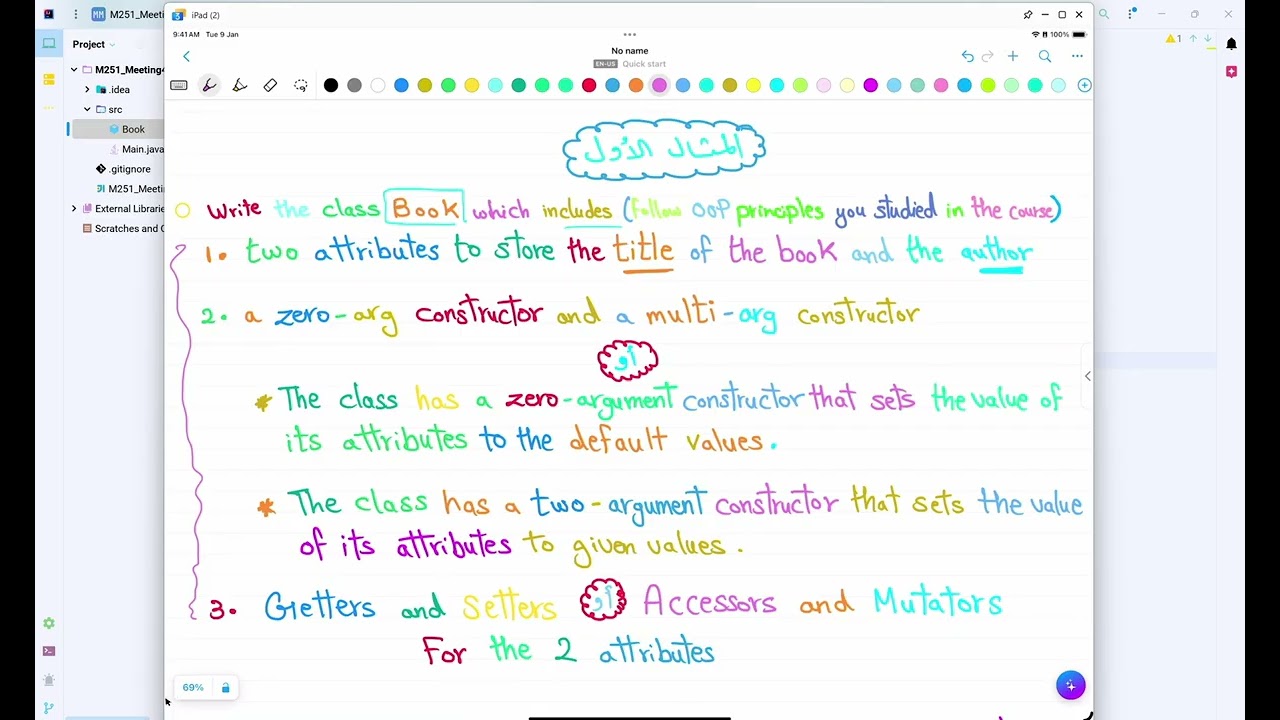 M251_Meeti
iPad (2)
9:41 AM Tue 9 Jan
100%
No name
EN-US Quick start
Project
M251_Meeting4
.idea
src
Book
Main.java
.gitignore
M251_Meetin
External Librarie
Scratches and C
1
المثال الأول
Write the class Book which includes (follow OOP principles you studied in the course)
1. two attributes to store the title of the book and the author
2. a zero-arg constructor and a multi-arg constructor
أو
* The class has a zero-argument constructor that sets the value of
its attributes to the default values.
* The class has a two-argument constructor that sets the value
of its attributes to given values.
3. Getters and Setters أو Accessors and Mutators
For the 2 attributes
69%